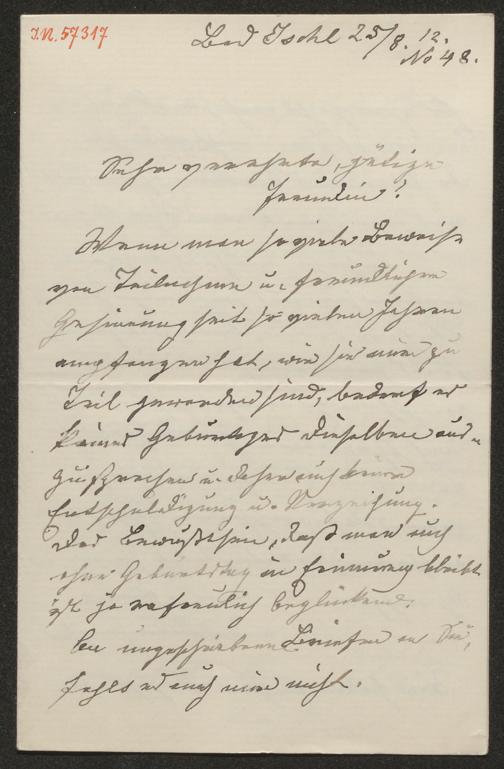 I.N. 57317
Bad Ischl 25/8. 12.
No 48.
Sehr verehrte, gütige
Freundin!
Wenn man so viele Beweise
von Teilnahme u. freundlicher
Gesinnung seit so vielen Jahren
empfangen hat, wie sie mir zu
Teil geworden sind, bedarf es
keines Geburtstages dieselben aus-
zusprechen u. daher auch keiner
Entschuldigung u. Verzeihung.
Das Bewußtsein, daß man auch
ohne Geburtstag in Erinnerung bleibt
ist ja erfreulich beglückend.
An ungeschriebenen Briefen an Sie,
fehlt es auch mir nicht.